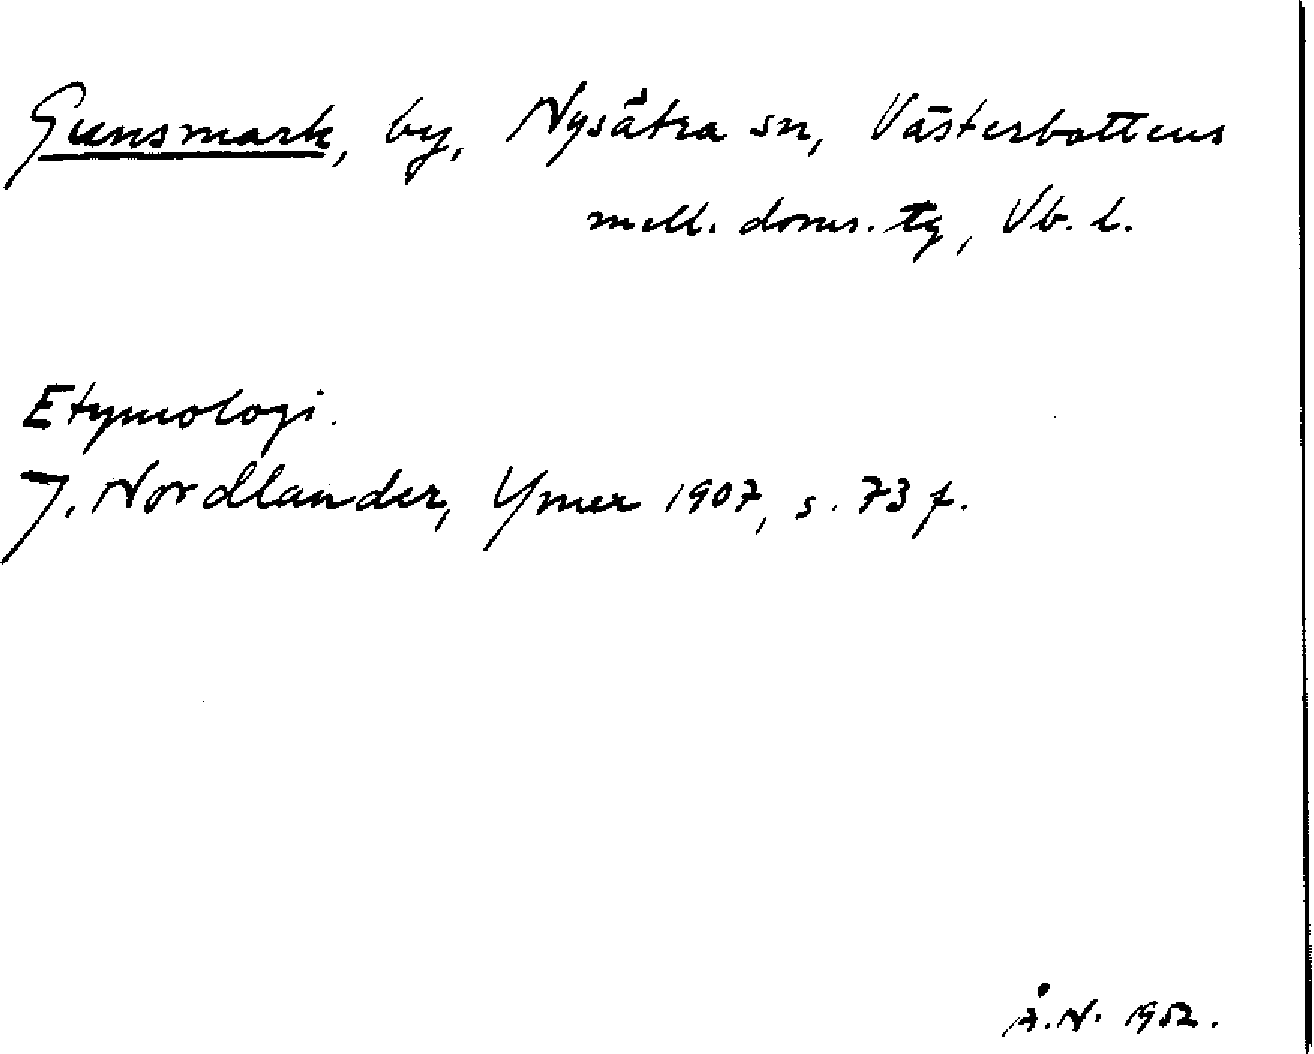 Gunsmark, by, Nysätra sn, Västerbottens
mell. doms. tg, Vb. l.
Etymologi.
J. Nordlander, Ymer 1907, s. 73 f.
Å.N. 1952.